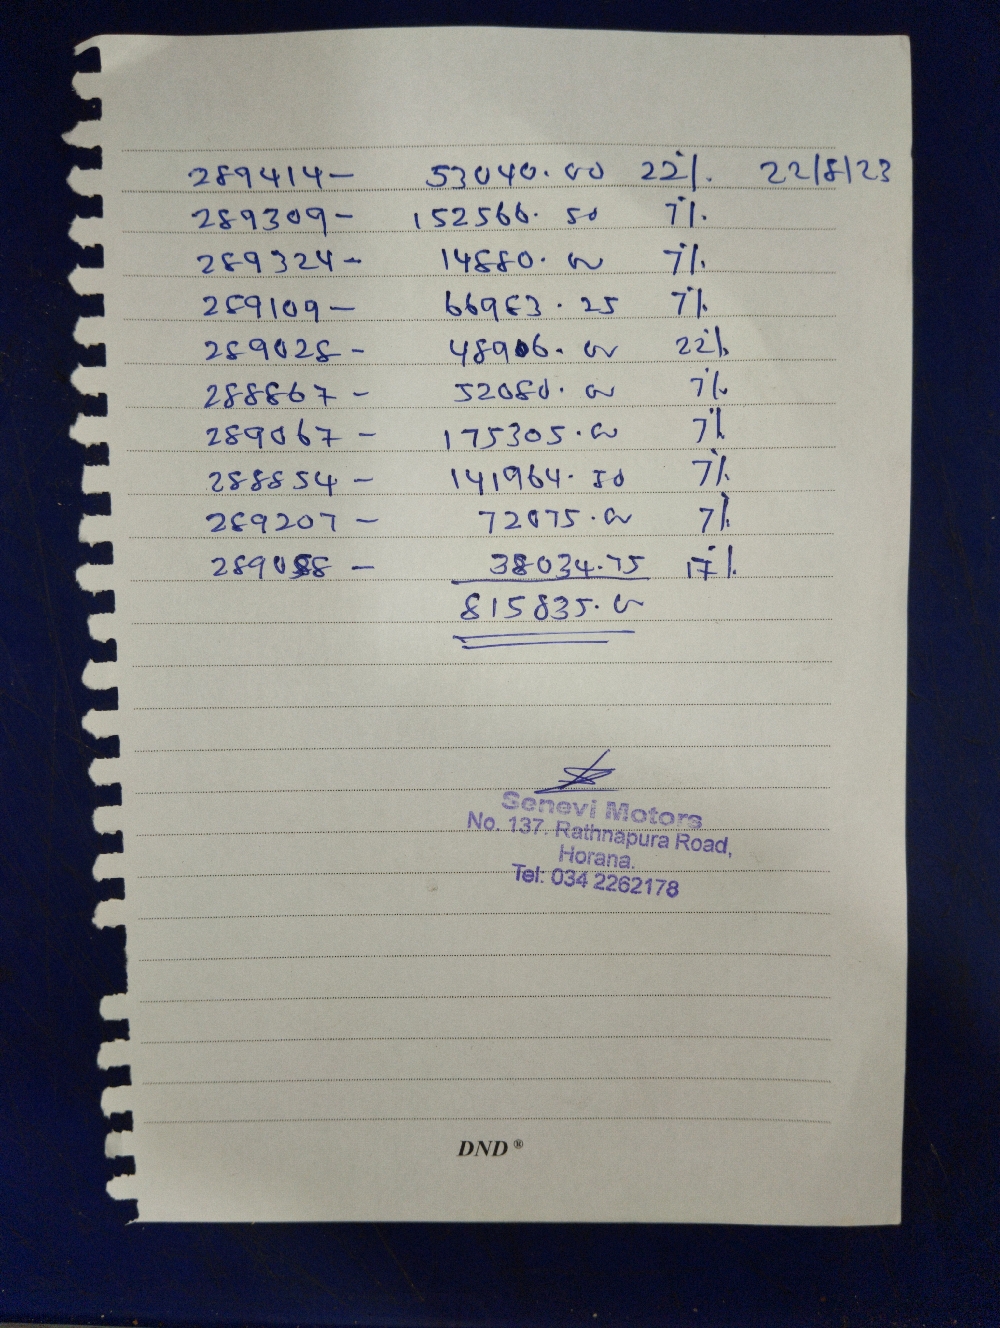 289414 - 53040.00 22% 22/8/23
289309 - 152566.50 7%
289324 - 14880.00 7%
289109 - 66983.25 7%
289028 - 48906.00 22%
288867 - 52080.00 7%
289067 - 175305.00 7%
288854 - 141964.50 7%
289207 - 72075.00 7%
289088 - 38034.75 17%
815835.00
Senevi Motors
No. 137. Rathnapura Road,
Horana.
Tel: 034 2262178
DND®